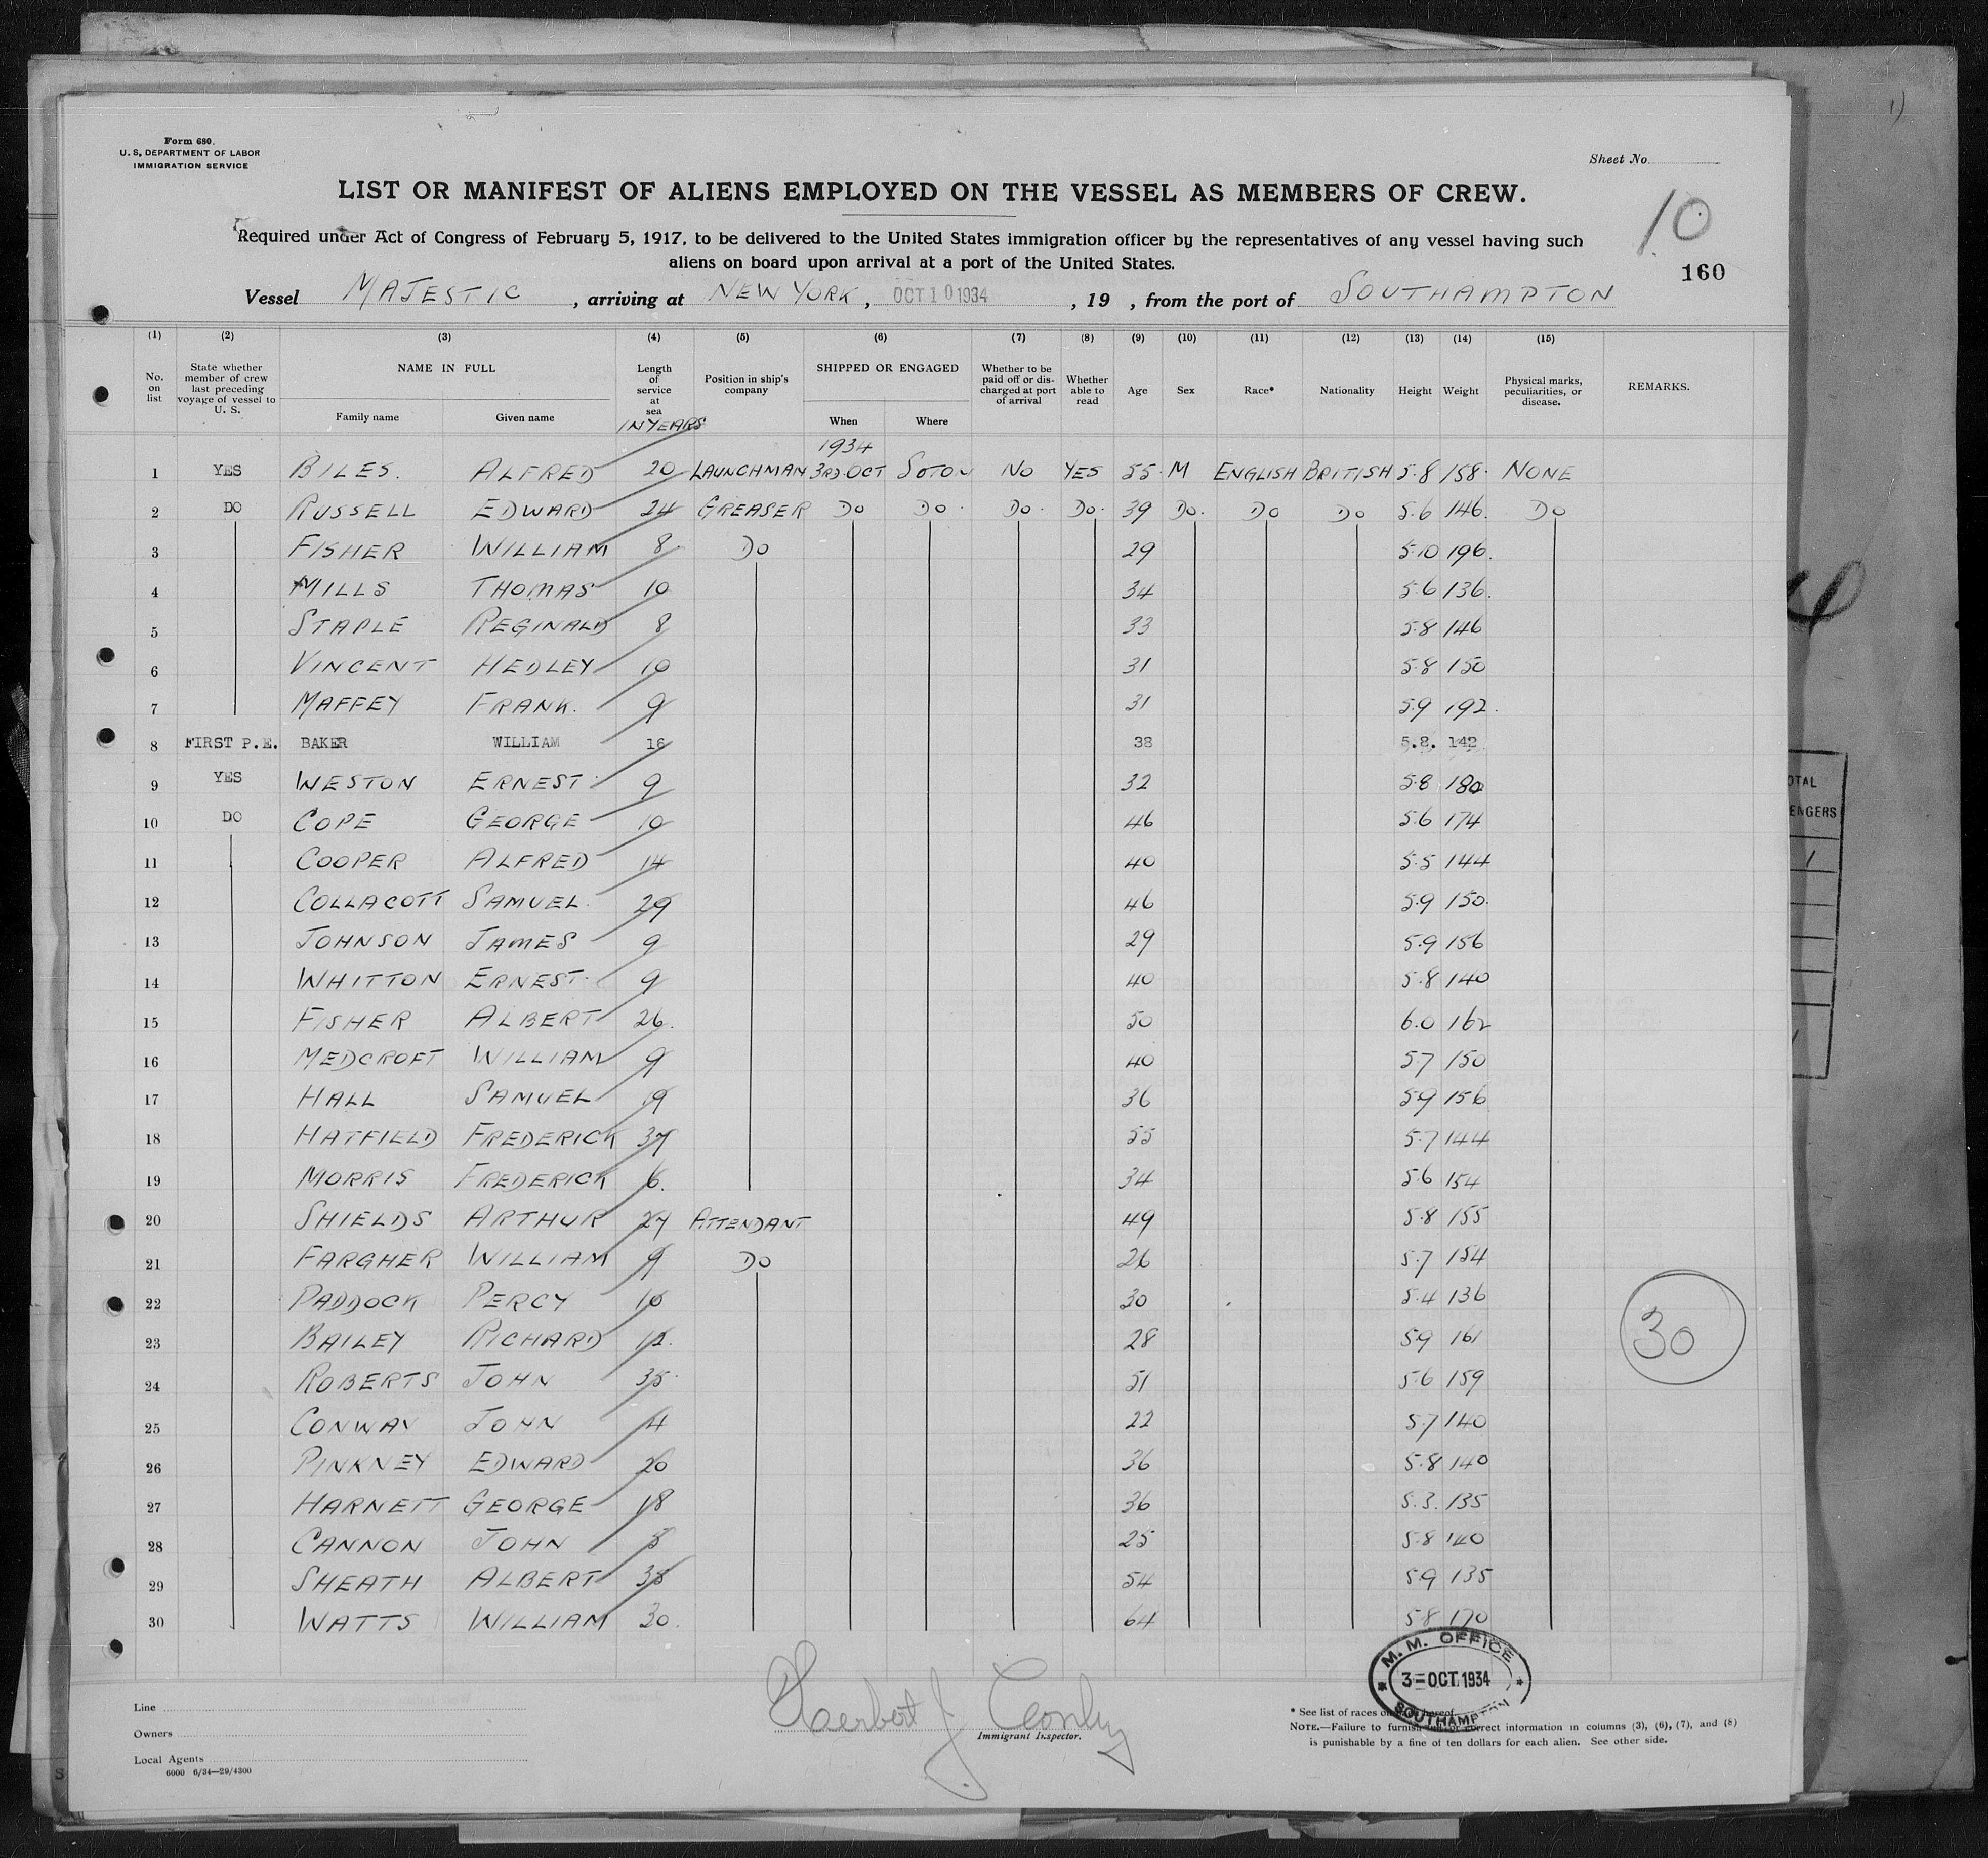 Form 680.
U. S. DEPARTMENT OF LABOR
IMMIGRATION SERVICE
Sheet No.
LIST OR MANIFEST OF ALIENS EMPLOYED ON THE VESSEL AS MEMBERS OF CREW.
10
Required under Act of Congress of February 5, 1917, to be delivered to the United States immigration officer by the representatives of any vessel having such
aliens on board upon arrival at a port of the United States.
160
Vessel MAJESTIC, arriving at NEW YORK, OCT 10 1934, 19 , from the port of SOUTHAMPTON
(1) (2) (3) (4) (5) (6) (7) (8) (9) (10) (11) (12) (13) (14) (15)
No. on list State whether member of crew last preceding voyage of vessel to U. S. NAME IN FULL Length of service at sea Position in ship's company SHIPPED OR ENGAGED Whether to be paid off or discharged at port of arrival Whether able to read Age Sex Race* Nationality Height Weight Physical marks, peculiarities, or disease. REMARKS.
Family name Given name IN YEARS When Where
1934
1 YES BILES. ALFRED 20 LAUNCHMAN 3RD OCT SOTON NO YES 55 M ENGLISH BRITISH 5.8 158 NONE
2 DO RUSSELL EDWARD 24 GREASER DO DO DO DO 39 DO DO DO 5.6 146 DO
3 FISHER WILLIAM 8 DO 29 5.10 196
4 MILLS THOMAS 10 34 5.6 136
5 STAPLE REGINALD 8 33 5.8 146
6 VINCENT HEDLEY 10 31 5.8 150
7 MAFFEY FRANK. 9 31 5.9 192
8 FIRST P.E. BAKER WILLIAM 16 38 5.8. 142
9 YES WESTON ERNEST 9 32 5.8 180
10 DO COPE GEORGE 10 46 5.6 174
11 COOPER ALFRED 14 40 5.5 144
12 COLLACOTT SAMUEL 29 46 5.9 150
13 JOHNSON JAMES 9 29 5.9 156
14 WHITTON ERNEST 9 40 5.8 140
15 FISHER ALBERT 26 50 6.0 162
16 MEDCROFT WILLIAM 9 40 5.7 150
17 HALL SAMUEL 9 36 5.9 156
18 HATFIELD FREDERICK 37 55 5.7 144
19 MORRIS FREDERICK 6 34 5.6 154
20 SHIELDS ARTHUR 27 ATTENDANT 49 5.8 155
21 FARGHER WILLIAM 9 DO 26 5.7 154
22 PADDOCK PERCY 10 30 5.4 136
23 BAILEY RICHARD 12 28 5.9 161
24 ROBERTS JOHN 35 51 5.6 159
25 CONWAY JOHN 4 22 5.7 140
26 PINKNEY EDWARD 20 36 5.8 140
27 HARNETT GEORGE 18 36 5.3. 135
28 CANNON JOHN 5 25 5.8 140
29 SHEATH ALBERT 38 54 5.9 135
30 WATTS WILLIAM 30 64 5.8 170
30
M. M. OFFICE
3-OCT 1934
SOUTHAMPTON
Line
Owners
Local Agents
6000 6/34—29/4300
Herbert J
Immigrant Inspector.
* See list of races on hereof.
NOTE.—Failure to furnish correct information in columns (3), (6), (7), and (8)
is punishable by a fine of ten dollars for each alien. See other side.